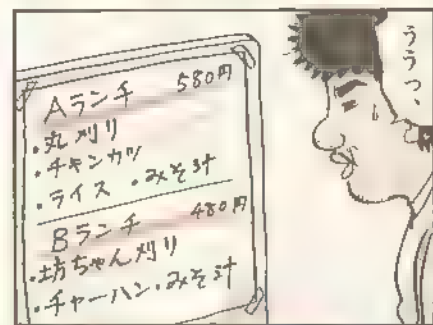 Aランチ 580円
・丸刈リ
・チキンカツ
・ライス・みそ汁
Bランチ 480円
・坊ちゃん刈リ
・チャーハン・みそ汁
ううっ、